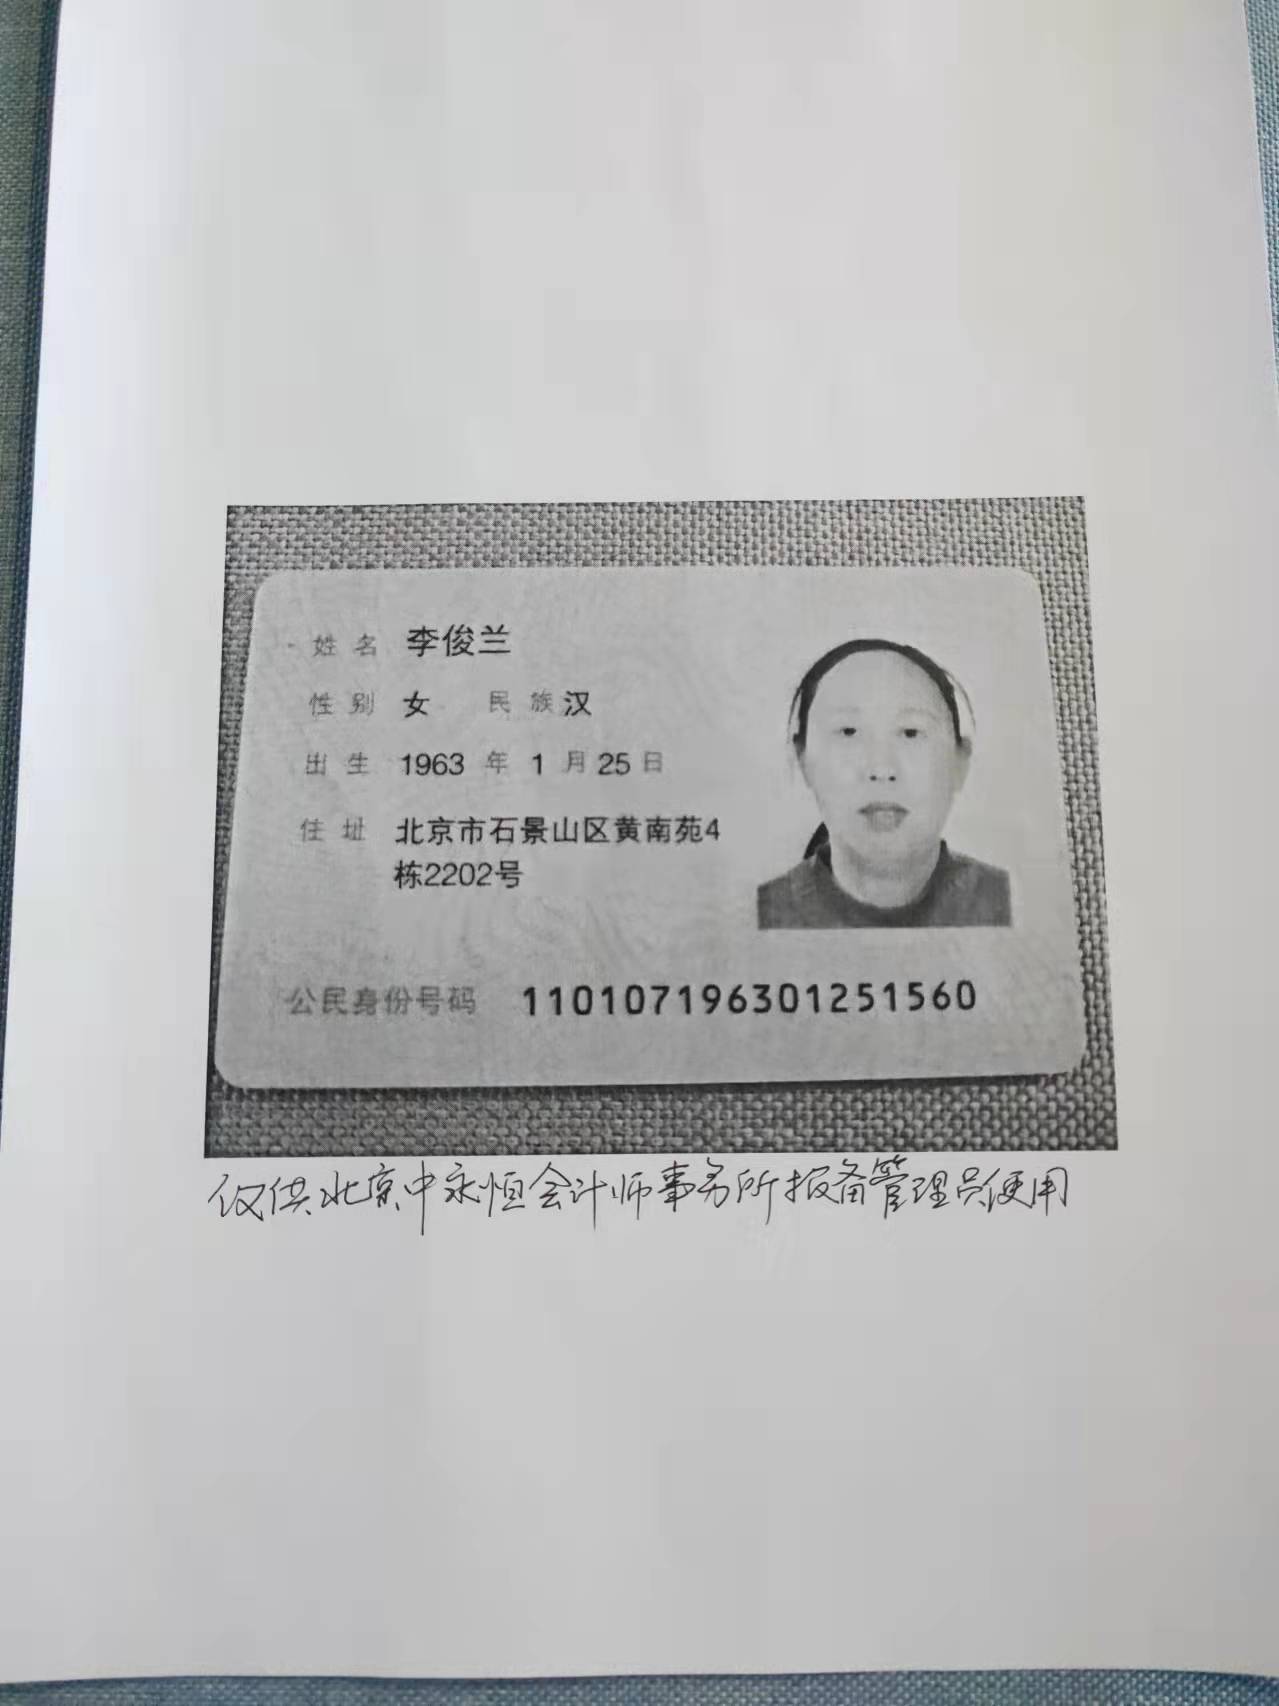 姓名 李俊兰
性别 女 民族 汉
出生 1963年1月25日
住址 北京市石景山区黄南苑4
栋2202号
公民身份号码 110107196301251560
仅供北京中永恒会计师事务所报备管理员使用